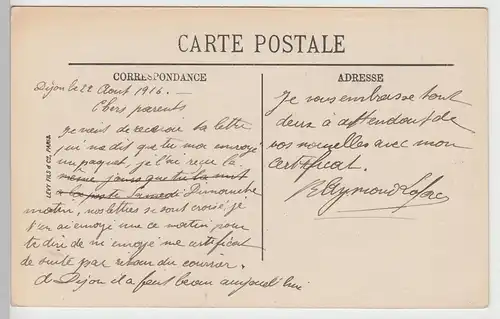 CARTE POSTALE
CORRESPONDANCE
Dijon le 22 Aout 1916. —
Chers parents
je viens de recevoir ta lettre
qui me dit que tu m'a envoyé
un paquet, je l'ai reçu le
même jours que tu la mit
a la poste Samedi Dimanche
matin, nos lettres se sont croisé, je
t'en ai envoyé une ce matin pour
te dire de m'envoyé me certificat
de suite par retour du courrier.
a Dijon il a fait beau aujourd'hui
LEVY FILS & Cie, PARIS
ADRESSE
Je vous embrasse tout
deux à attendant de
vos nouvelles avec mon
certificat.
Raymond